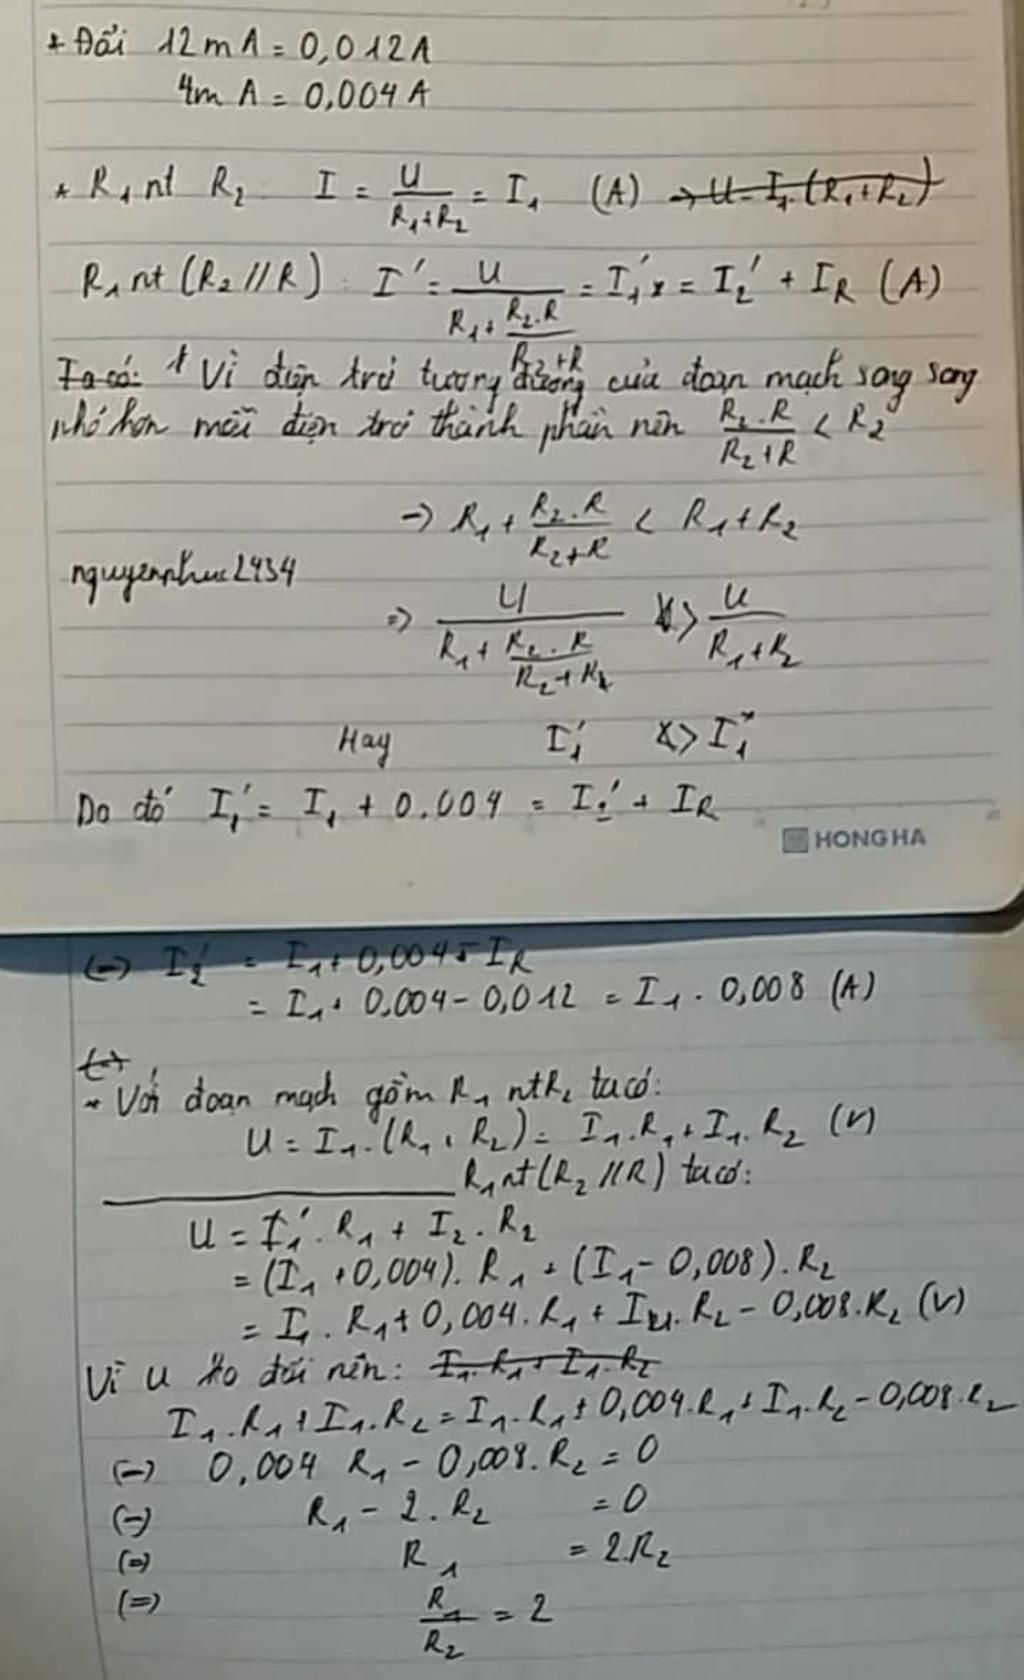 * Đổi 12mA = 0,012A
4mA = 0,004A
* R₁ nt R₂: I = U/(R₁+R₂) = I₁ (A) → U = I₁.(R₁+R₂)
R₁ nt (R₂//R): I' = U/(R₁ + R₂.R/(R₂+R)) = I₁' = I₂' + I_R (A)
Ta có: Vì điện trở tương đương của đoạn mạch song song
nhỏ hơn mỗi điện trở thành phần nên R₂.R/(R₂+R) < R₂
→ R₁ + R₂.R/(R₂+R) < R₁+R₂
nguyenphuc2434
=> U/(R₁ + R₂.R/(R₂+R)) > U/(R₁+R₂)
Hay I₁' > I₁
Do đó I₁' = I₁ + 0.004 = I₂' + I_R
HONG HA
(=) I₂' = I₁ + 0,004 - I_R
= I₁ + 0,004 - 0,012 = I₁ - 0,008 (A)
* Với đoạn mạch gồm R₁ nt R₂ ta có:
U = I₁.(R₁+R₂) = I₁.R₁ + I₁.R₂ (V)
R₁ nt (R₂//R) ta có:
U = I₁'.R₁ + I₂.R₂
= (I₁+0,004).R₁ + (I₁-0,008).R₂
= I₁.R₁ + 0,004.R₁ + I₁.R₂ - 0,008.R₂ (V)
Vì U ko đổi nên: I₁.R₁ + I₁.R₂
I₁.R₁ + I₁.R₂ = I₁.R₁ + 0,004.R₁ + I₁.R₂ - 0,008.R₂
(=) 0,004 R₁ - 0,008.R₂ = 0
(=) R₁ - 2.R₂ = 0
(=) R₁ = 2.R₂
(=) R₁/R₂ = 2